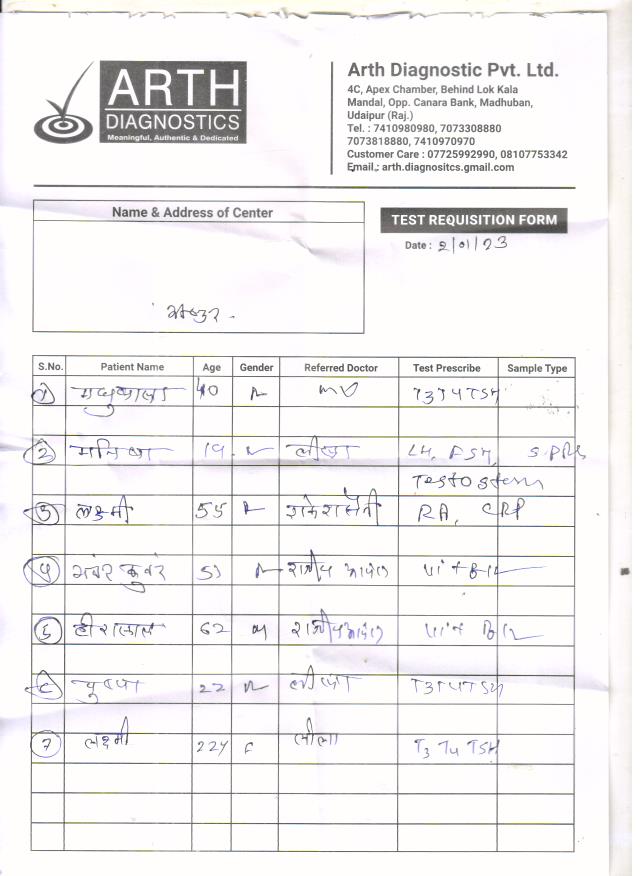 ARTH
DIAGNOSTICS
Meaningful, Authentic & Dedicated
Arth Diagnostic Pvt. Ltd.
4C, Apex Chamber, Behind Lok Kala
Mandal, Opp. Canara Bank, Madhuban,
Udaipur (Raj.)
Tel. : 7410980980, 7073308880
7073818880, 7410970970
Customer Care : 07725992990, 08107753342
Email.: arth.diagnositcs.gmail.com
Name & Address of Center
TEST REQUISITION FORM
Date : 2/01/23
S.No. Patient Name Age Gender Referred Doctor Test Prescribe Sample Type
1 मधुबाला 40 T3T4TSH
2 मनिषा 19 LH, FSH, S.PRL
Testostern
3 लक्ष्मी 55 RA, CRP
4 भवंर कुवंर 51 Vit B12
5 हीरालाल 62 M Vit B12
6 पुष्पा 22 T3T4TSH
7 लक्ष्मी 22y F लीला T3 T4 TSH